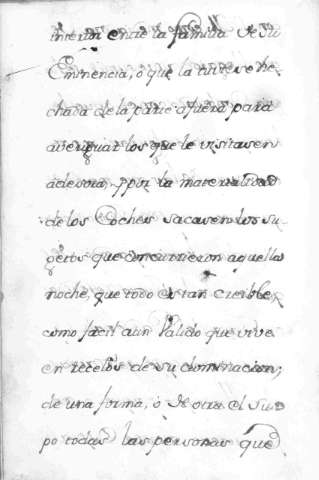 interin entre la familia de su
Eminencia, ò que la tubiese he-
chada de la parte afuera para
averiguar los que le visitasen
à desora, ppor la materialidad
de los Coches sacasen los su-
getos que concurrieron aquella
noche, que todo es tan creible,
como facil à un Valido que vive
en rezelos de su dominacion;
de una forma, ò de otra el su-
po todas las personas que